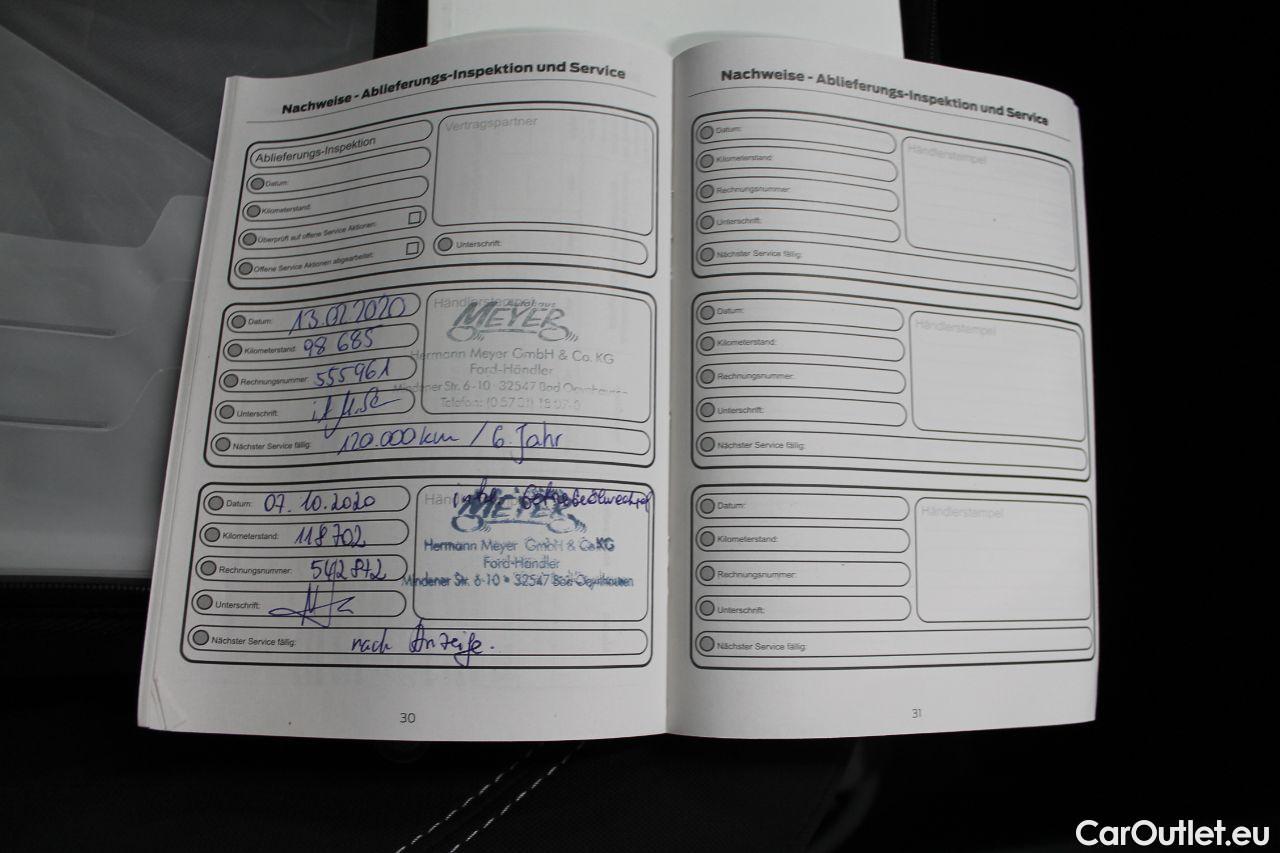 Nachweise - Ablieferungs-Inspektion und Service
Ablieferungs-Inspektion
Datum:
Kilometerstand:
Überprüft auf offene Service Aktionen:
Offene Service Aktionen abgearbeitet:
Vertragspartner
Unterschrift:
Datum: 13.02.2020
Kilometerstand: 98 685
Rechnungsnummer: 555961
Unterschrift:
Nächster Service fällig: 120.000 km / 6. Jahr
Händlerstempel
Autohaus
MEYER
Hermann Meyer GmbH & Co. KG
Ford-Händler
Mindener Str. 6-10 · 32547 Bad Oeynhausen
Telefon:
Datum: 07.10.2020
Kilometerstand: 118702
Rechnungsnummer: 542872
Unterschrift:
Nächster Service fällig: nach Anzeige.
Getriebeölwechsel
MEYER
Hermann Meyer GmbH & Co.KG
Ford-Händler
Mindener Str. 6-10 • 32547 Bad Oeynhausen
30
Nachweise - Ablieferungs-Inspektion und Service
Datum:
Kilometerstand:
Rechnungsnummer:
Unterschrift:
Nächster Service fällig:
Händlerstempel
Datum:
Kilometerstand:
Rechnungsnummer:
Unterschrift:
Nächster Service fällig:
Händlerstempel
Datum:
Kilometerstand:
Rechnungsnummer:
Unterschrift:
Nächster Service fällig:
Händlerstempel
31
CarOutlet.eu